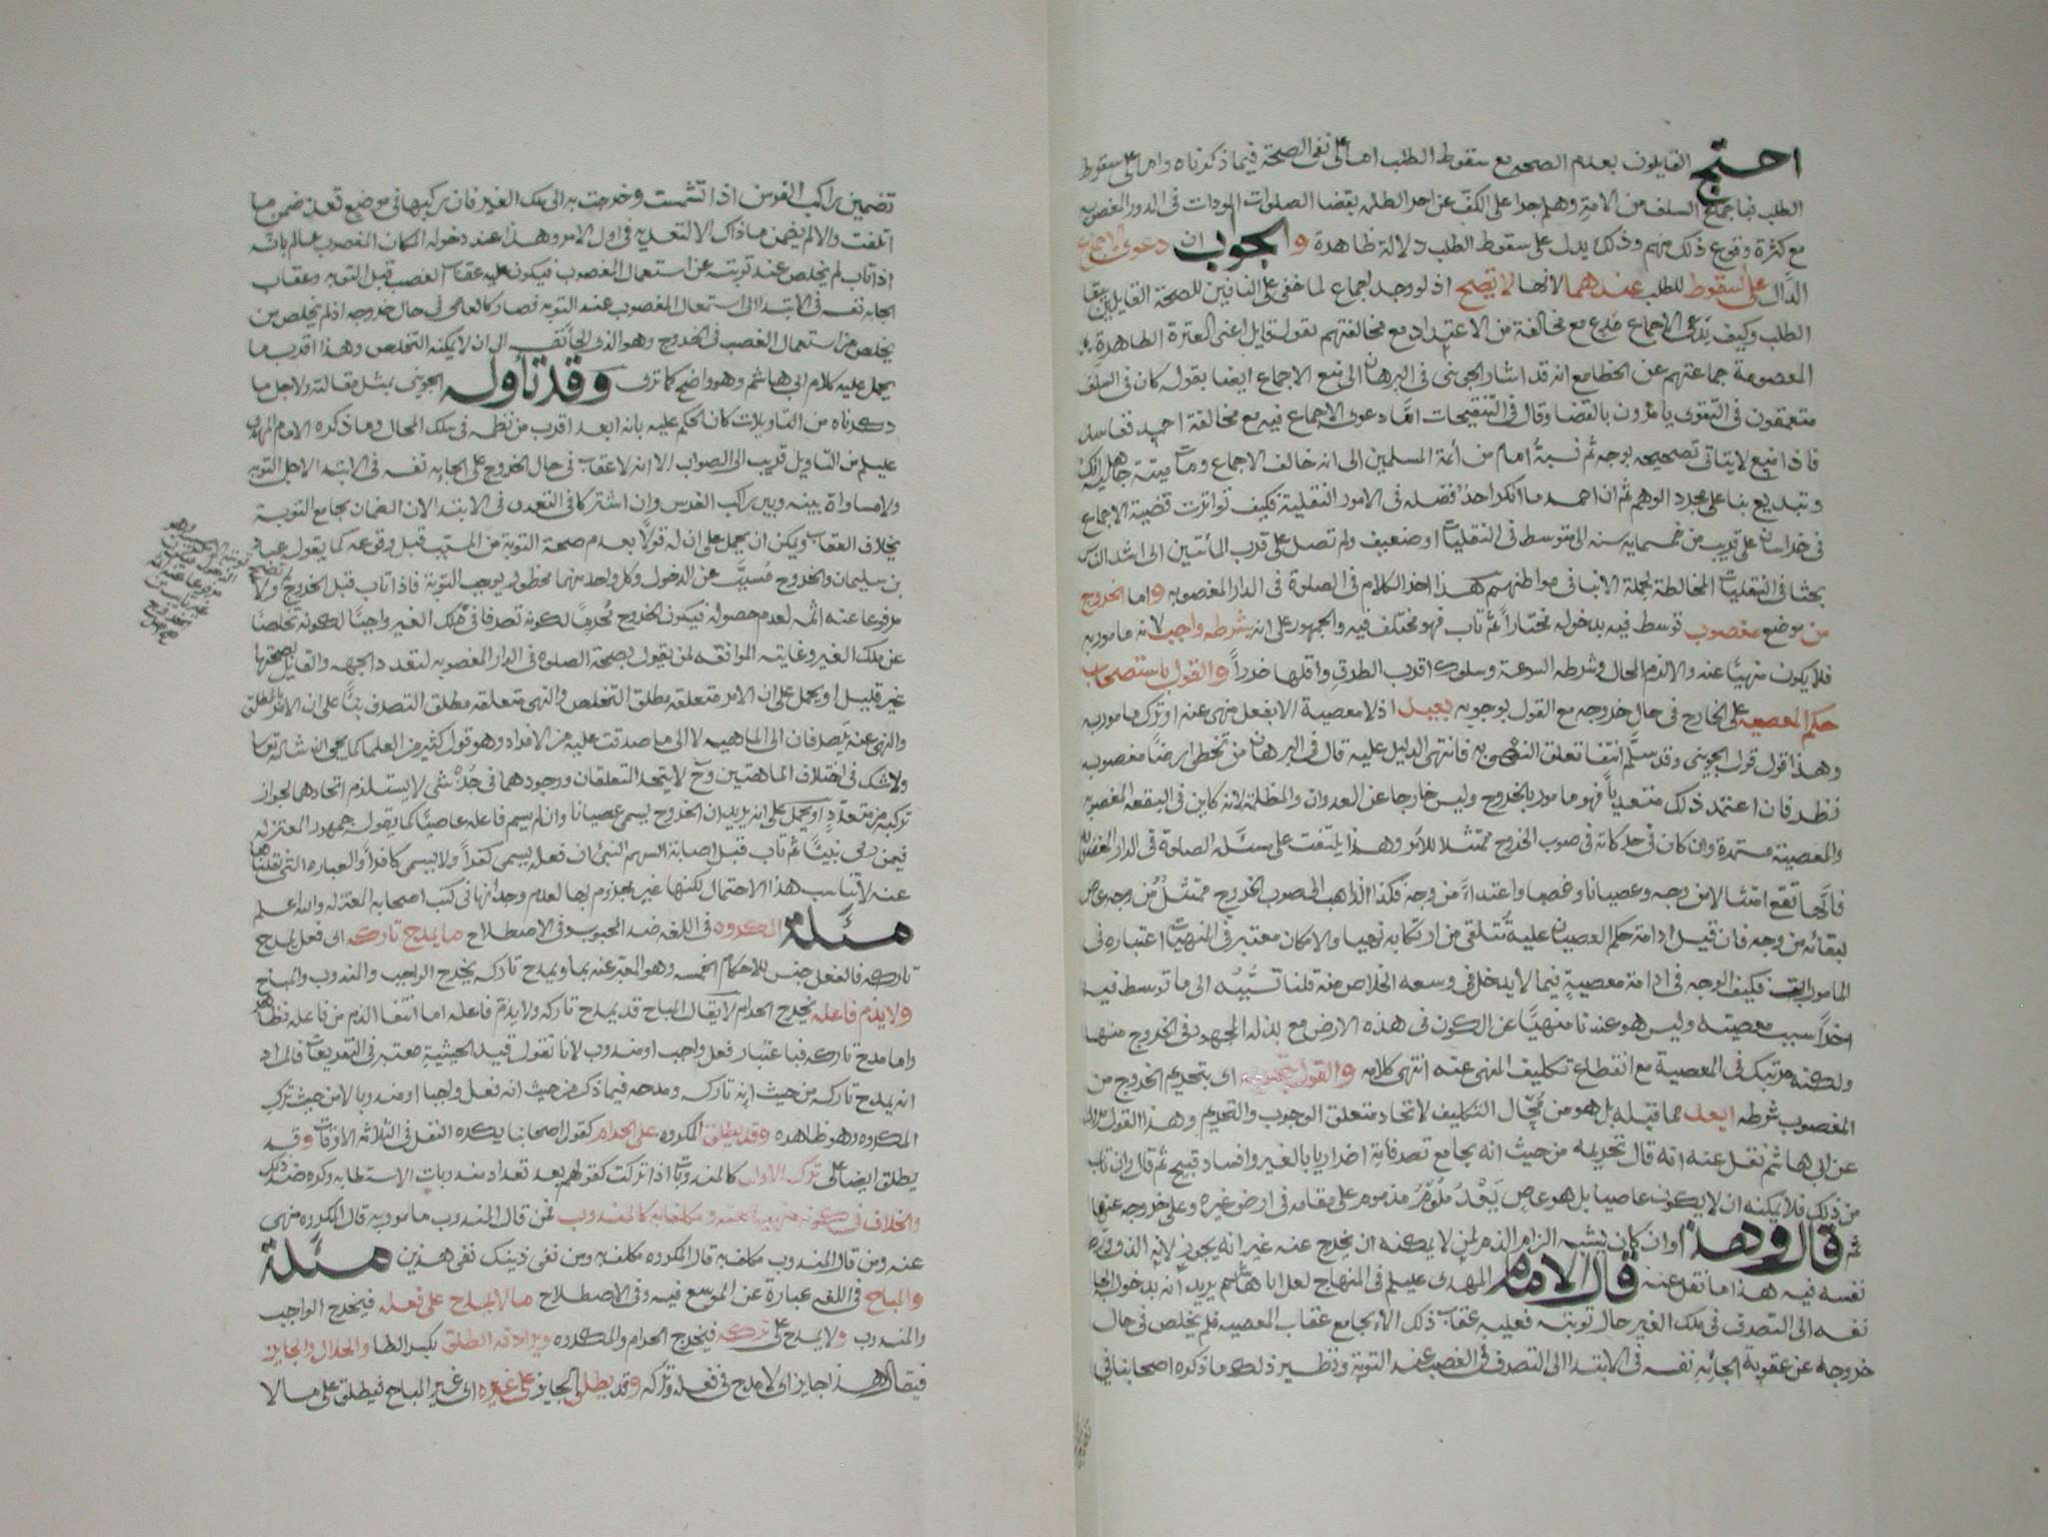 احتج القايلون بعدم الصحه مع سقوط الطلب اما على نفى الصحة فيما ذكرناه واما على سقوط
الطلب فباجماع السلف من الامة وهلم جرا على الكف عن امر الظلمه بقضا الصلوات المودات فى الدور المغصوبه
مع كثرة وقوع ذلك منهم وذلك يدل على سقوط الطلب دلالة ظاهرة والجواب ان دعوى الاجماع
الدال على سقوط للطلب عندهما لانها لا تصح اذ لو وجد اجماع لما خفى على النافين للصحة القايلين ببقا
الطلب وكيف يدعى الاجماع مع مخالفة من الاعتداد مع مخالفتهم بقول قايل اعنى العترة الطاهرة
المعصومة جماعتهم عن الخطا مع انه قد اشار الجوينى فى البرهان الى منع الاجماع ايضا بقوله كان فى السلف
متعمقون فى التقوى يامرون بالقضا وقال فى التنقيحات اما دعوى الاجماع فيه مع مخالفة احمد ففاسد
فاذا منع لا يتاتى تصحيحه بوجه ثم نسبة امام من أئمة المسلمين الى انه خالف الاجماع ومات ميتة جاهلية افك
وتبديع بنا على مجرد الوهم ثم ان احمد ما انكر احد فضله فى الامور النقلية فكيف تواترت قضية الاجماع
فى خراسان على قريب من خمسمايه سنه الى متوسط فى النقليات او ضعيف ولم تصل على قرب المأتين الى اشد الناس
بحثا فى النقليات المخالطة لجملة الانبا فى مواطنهم هذا اخر الكلام فى الصلوة فى الدار المغصوبه واما الخروج
من موضع مغصوب توسط فيه بدخوله مختاراً ثم تاب فهو مختلف فيه والجمهور على انه بشرطه واجب لانه مامور به
فلا يكون منهيا عنه والا لزم المحال وشرطه السرعة وسلوك اقرب الطرق واقلها ضرراً والقول باستصحاب
حكم المعصيه على الخارج فى حال خروجه مع القول بوجوبه بعيد اذ لا معصية الا بفعل منهى عنه او ترك مامور به
وهذا قول الجوينى وقد سلم انتفا تعلق النهى به فانتهى الدليل عليه قال فى البرهان من تخطى ارضا مغصوبه
نظر فان اعتمد ذلك متعدياً فهو مامور بالخروج وليس خارجا عن العدوان والمظلمة لانه كاين فى البقعه المغصوبه
والمعصية مستمرة وان كان فى حركاته فى صوب الخروج ممتثلا للأمر وهذا يلتفت على مسئلة الصلوة فى الدار المغصوبه
فانها تقع امتثالا من وجه وعصيانا وغصبا واعتداءً من وجه فكذا الذاهب الى صوب الخروج ممتثل من وجه عاص
لبقائه من وجه فان قيل ادامة حكم العصيان عليه تتلقى من ارتكابه نهيا والامكان معتبر فى المنهيات اعتباره فى
المامورات فكيف الوجه فى ادامة معصيةٍ فيما لا يدخل فى وسعه الخلاص منه قلنا تسبُّبه الى ما توسط فيه
اخراً سبب معصيته وليس هو عندنا منهيًا عن الكون فى هذه الارض مع بذله المجهود فى الخروج منها
ولكنه مرتبك فى المعصية مع انقطاع تكليف النهى عنه انتهى كلامه والقول اى بتحريم الخروج من
المغصوب بشرطه ابعد مما قبله بل هو من مُحال التكليف لاتحاد متعلق الوجوب والتحريم وهذا القول
عن ابى هاشم نقل عنه انه قال تحريمه من حيث انه يجامع تصرفاته اضرارا بالغير وافساد قبيح ثم قال وان تاب
من ذلك فلا يمكنه ان لا يكون عاصيا بل هو عاصٍ بَعْدُ ملوم مذموم على مقامه فى ارض غيره وعلى خروجه عنها
ثم قال وهذا وان كان يشبه الزام الذم لمن لا يمكنه ان يخرج عنه غير انه يجوز لانه الذى
نفسه فيه هذا ما نقل عنه قال الامام المهدى عليلم فى المنهاج لعل ابا هاشم يريد انه بدخوله الجا
نفسه الى التصرف فى ملك الغير حال توبته فعليه عقاب ذلك الا يجامع عقاب المعصيه فلم يخلص فى حال
خروجه عن عقوبة الجائه نفسه فى الابتدا الى التصرف فى الغصب عند التوبة ونظير ذلك ما ذكره اصحابنا فى
تضمين راكب الفرس اذا تشمست وخرجت به الى ملك الغير فان ركبها فى موضع تعد ضمن ما
اتلفت والا لم يضمن وما ذاك الا لتعديه فى اول الامر وهذا عند دخوله المكان المغصوب عالم بانه
اذا تاب لم يخلص عند توبته عن استعمال المغصوب فيكون عليه عقاب الغصب قبل التوبه وعقاب
الجايه نفسه فى الابتدا الى استعمال المغصوب عند التوبه فصار كالعاصى فى حال خروجه اذ لم يخلص من
يخلص من استعمال الغصب فى الخروج وهو الذى الجا نفسه الى ان لا يمكنه التخلص وهذا اقرب ما
يحمل عليه كلام ابى هاشم وهو واضح كما ترى وقد تأوله الجوينى بمثل مقالته ولاجل ما
ذكرناه من التاويلات كان الحكم عليه بانه ابعد اقرب من نظمه فى سلك المحال وما ذكره الامام المهدى
عليلم من التاويل قريب الى الصواب الا انه لا عقاب فى حال الخروج على الجايه نفسه فى الابتدا لاجل التوبه
ولا مساواة بينه وبين راكب الفرس وان اشتركا فى التعدى فى الابتدا لان الضمان يجامع التوبة
بخلاف العقاب ويمكن ان يحمل على ان له قولاً بعدم صحة التوبة من المسبب قبل وقوعه كما يقول عباد
بن سليمان والخروج مُسبَّب عن الدخول وكل واحد منهما محظور يوجب التوبة فاذا تاب قبل الخروج
مرفوعا عنه اثمه لعدم حصوله فيكون الخروج مُحرماً لكونه تصرفا فى ملك الغير واجبًا لكونه تخلصًا
عن ملك الغير وغايته الموافقه لمن يقول بصحة الصلوه فى الدار المغصوبه لتعدد الجهه والقايل بصحتها
غير قليل او يحمل على ان الامر متعلقه مطلق التخلص والنهى متعلقه مطلق التصرف بناً على ان الامر المطلق
والنهى عنه يصرفان الى الماهيه لا الى ما صدقت عليه من الافراد وهو قول كثير من العلما كما يجى ان شا الله تعالى
ولا شك فى اختلاف الماهتين وح لا يتحد المتعلقان ووجودهما فى جزئى لا يستلزم اتحادهما لجواز
تركبه من متعدد او يحمل على انه يريد ان الخروج يسمى عصيانا وان لم يسم فاعله عاصيًا كما يقوله جمهور المعتزله
فيمن رمى نبيًا ثم تاب قبل اصابة السهم النبى ان فعله يسمى كفراً ولا يسمى كافراً والعباره التى نقلناها
عنه لا تناسب هذا الاحتمال لكنها غير مجزوم بها لعدم وجدانها فى كتب اصحابه المعتزله والله اعلم
مسئلة المكروه فى اللغه ضد المحبوب وفى الاصطلاح ما يمدح تاركه اى فعل يمدح
تاركه فالفعل جنس للاحكام الخمسه وهو المعبر عنه بما ويمدح تاركه يخرج الواجب والمندوب والمباح
ولا يذم فاعله يخرج الحرام لا يقال المباح قد يمدح تاركه ولا يذم فاعله اما انتفا الذم من فاعله فظاهر
واما مدح تاركه فباعتبار فعل واجب او مندوب لانا نقول قيد الحيثية معتبر فى التعريفات فالمراد
انه يمدح تاركه من حيث انه تاركه ومدحه فيما ذكر من حيث انه فعل واجبا او مندوبا لا من حيث ترك
المكروه وهو ظاهره وقد يطلق المكروه على الحرام كقول اصحابنا يكره النفل فى الثلاثة الاوقات وقد
يطلق ايضا على ترك الاولى كالمندوبات اذا تركت كقولهم بعد تعداد مندوبات الاستطابه وكره ضد ذلك
والخلاف فى كونه منهيا عنه ومكلفا به كالمندوب فمن قال المندوب مامور به قال المكروه منهى
عنه ومن قال المندوب مكلف به قال المكروه مكلف به ومن نفى ذينك نفى هذين مسئلة
والمباح فى اللغه عبارة عن الموسع فيه وفى الاصطلاح ما لا يمدح على فعله فيخرج الواجب
والمندوب ولا يمدح على تركه فيخرج الحرام والمكروه ويرادفه الطلق بكسر الطا والحلال والجايز
فيقال هذا جايز اى لا مدح فى فعله وتركه وقد يطلق الجايز على غيره اى غير المباح فيطلق على ما لا